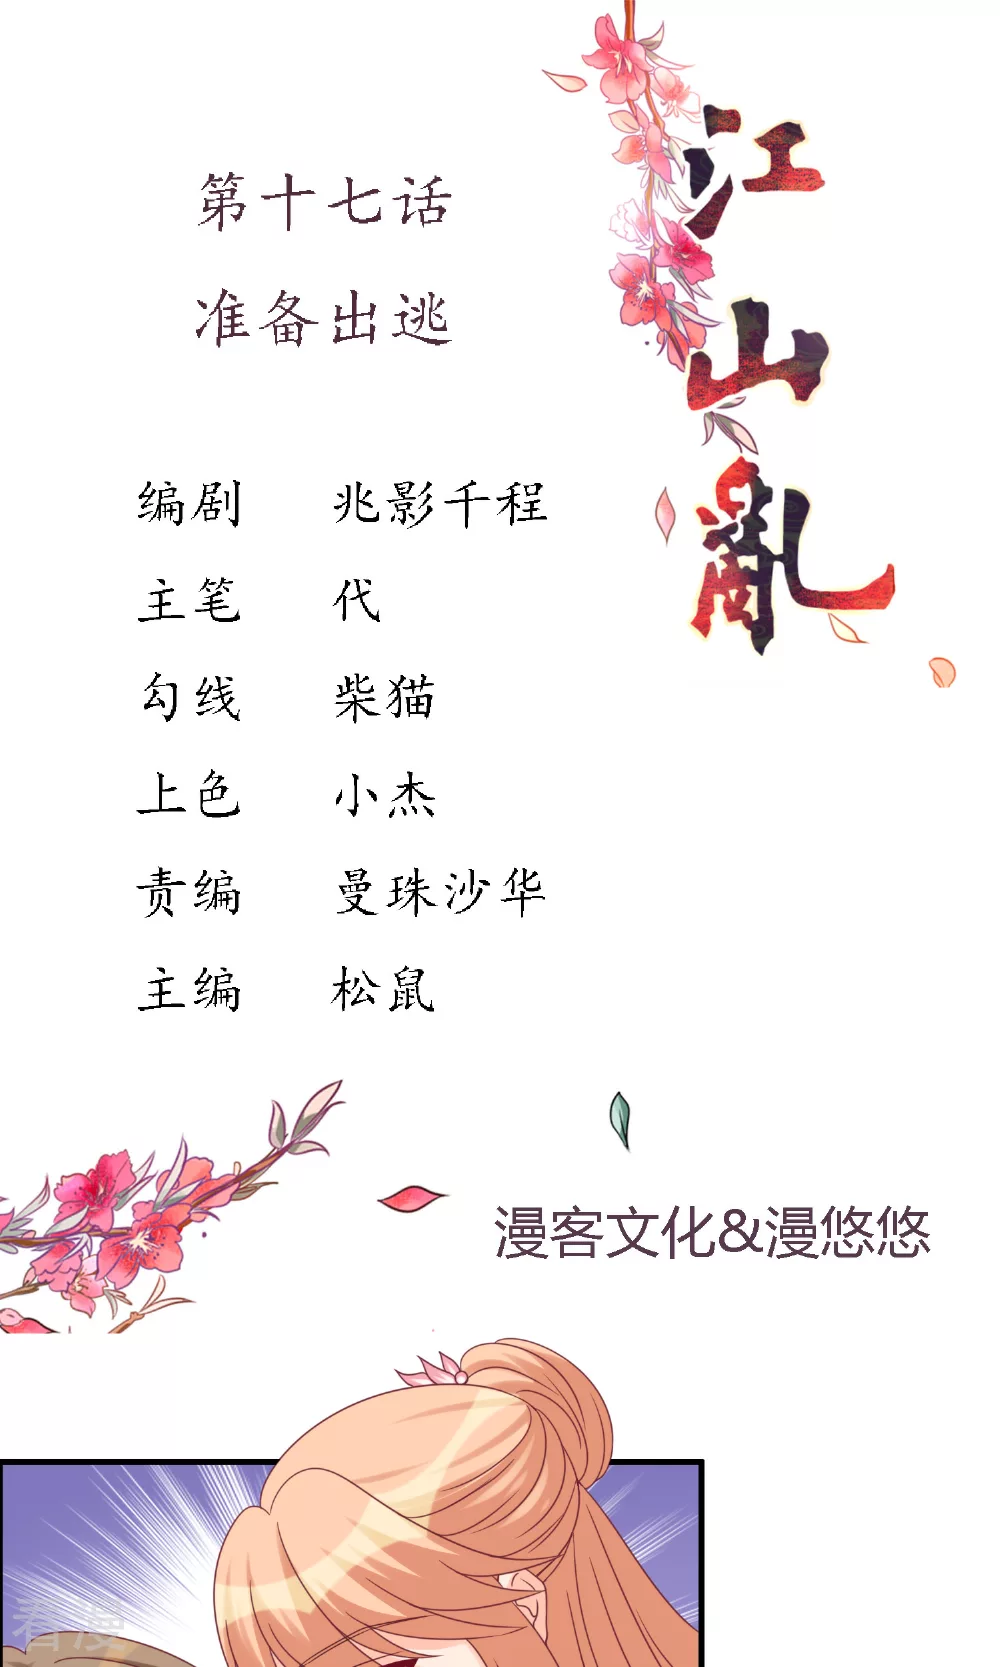 江山亂
第十七话
准备出逃
编剧 兆影千程
主笔 代
勾线 柴猫
上色 小杰
责编 曼珠沙华
主编 松鼠
漫客文化&漫悠悠
看漫